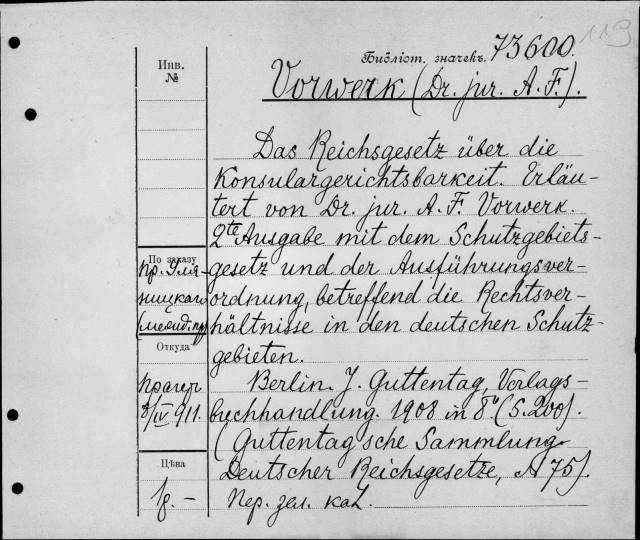 119
Библіот. значекъ. 73600.
Инв.
№
Vorwerk (Dr. jur. A. F.).
Das Reichsgesetz über die
Konsulargerichtsbarkeit. Erläu-
tert von Dr. jur. A. F. Vorwerk.
2te Ausgabe mit dem Schutzgebiets-
gesetz und der Ausführungsver-
ordnung, betreffend die Rechtsver-
hältnisse in den deutschen Schutz-
gebieten.
Berlin. J. Guttentag, Verlags-
buchhandlung. 1908 in 8º (S. 200).
(Guttentag'sche Sammlung
Deutscher Reichsgesetze, № 75).
Пер. зел. кал.
По заказу
пр.
Откуда
Прагер
8/IV 911.
Цѣна
1р. –